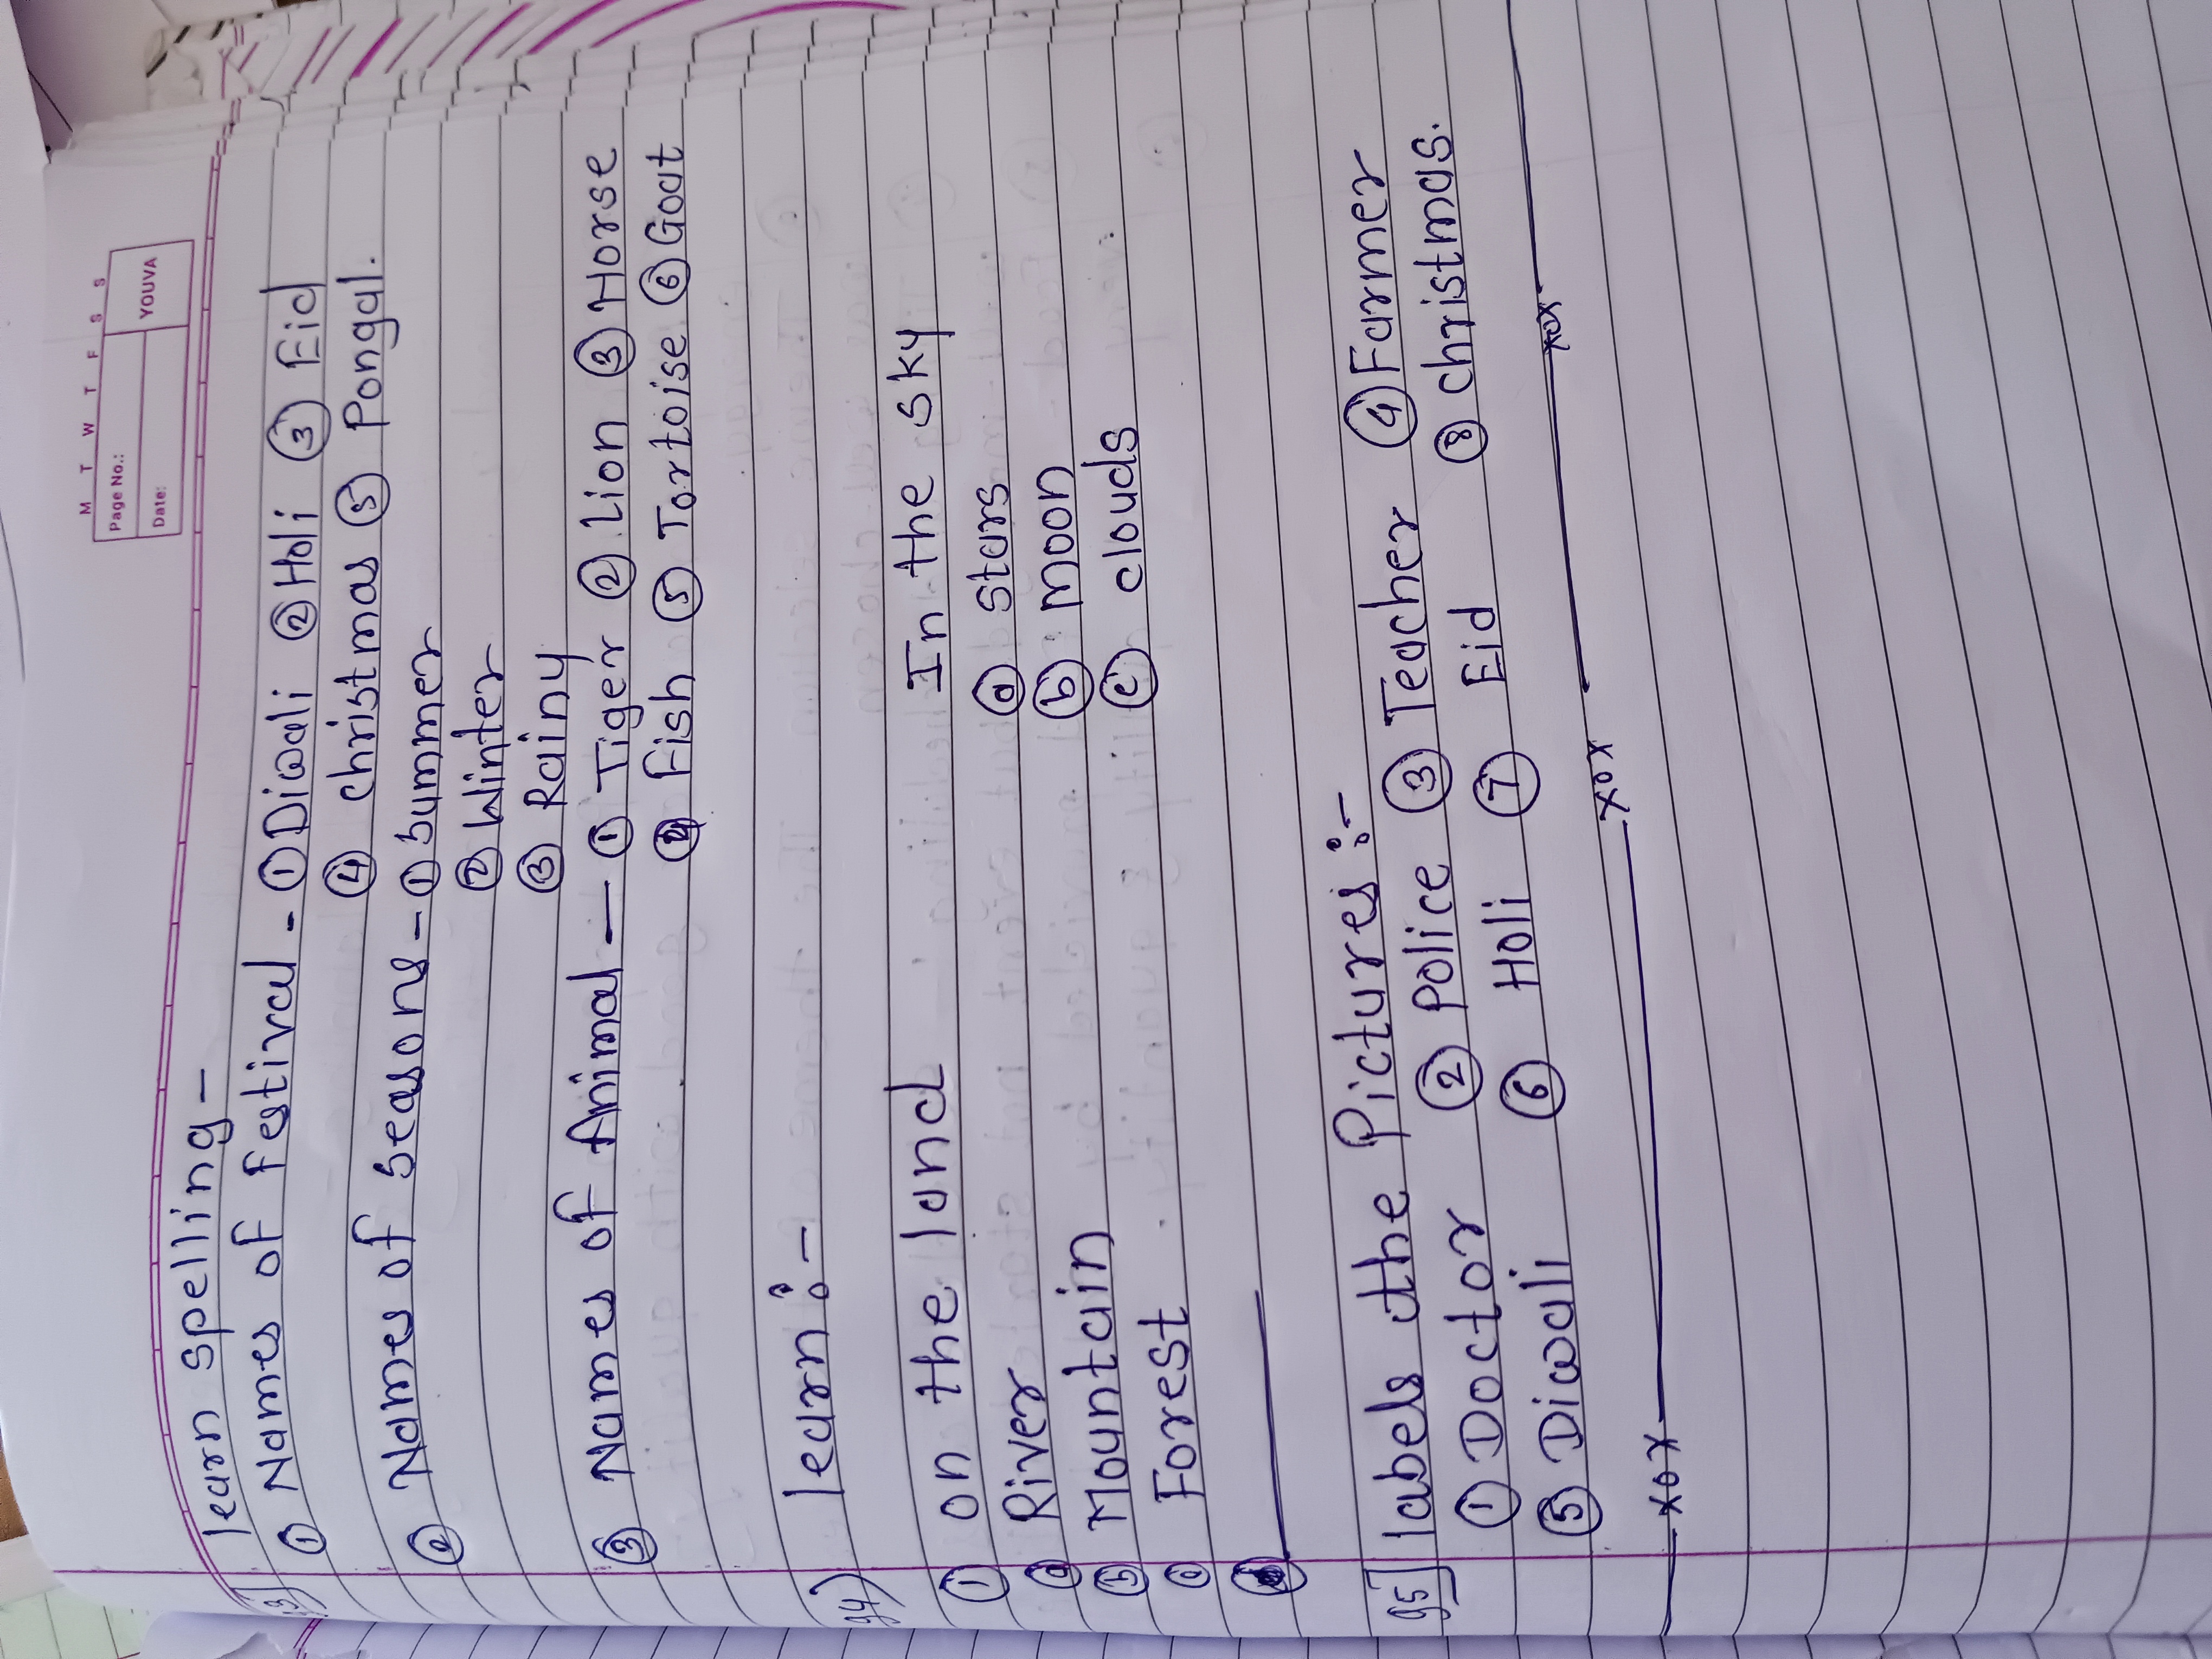 M T W T F S S
Page No.:
Date:
YOUVA
learn spelling -
① Names of festival - ① Diwali ② Holi ③ Eid
④ christmas ⑤ Pongal.
② Names of seasons - ① Summer
② Winter
③ Rainy
③ Names of Animal - ① Tiger ② Lion ③ Horse
④ Fish ⑤ Tortoise ⑥ Goat
g4) learn :-
① on the land In the sky
ⓐ River ⓐ stars
ⓑ Mountain ⓑ moon
ⓒ Forest ⓒ clouds
g5] labels the Pictures :-
① Doctor ② Police ③ Teacher ④ Farmer
⑤ Diwali ⑥ Holi ⑦ Eid ⑧ christmas.
xox xox xox